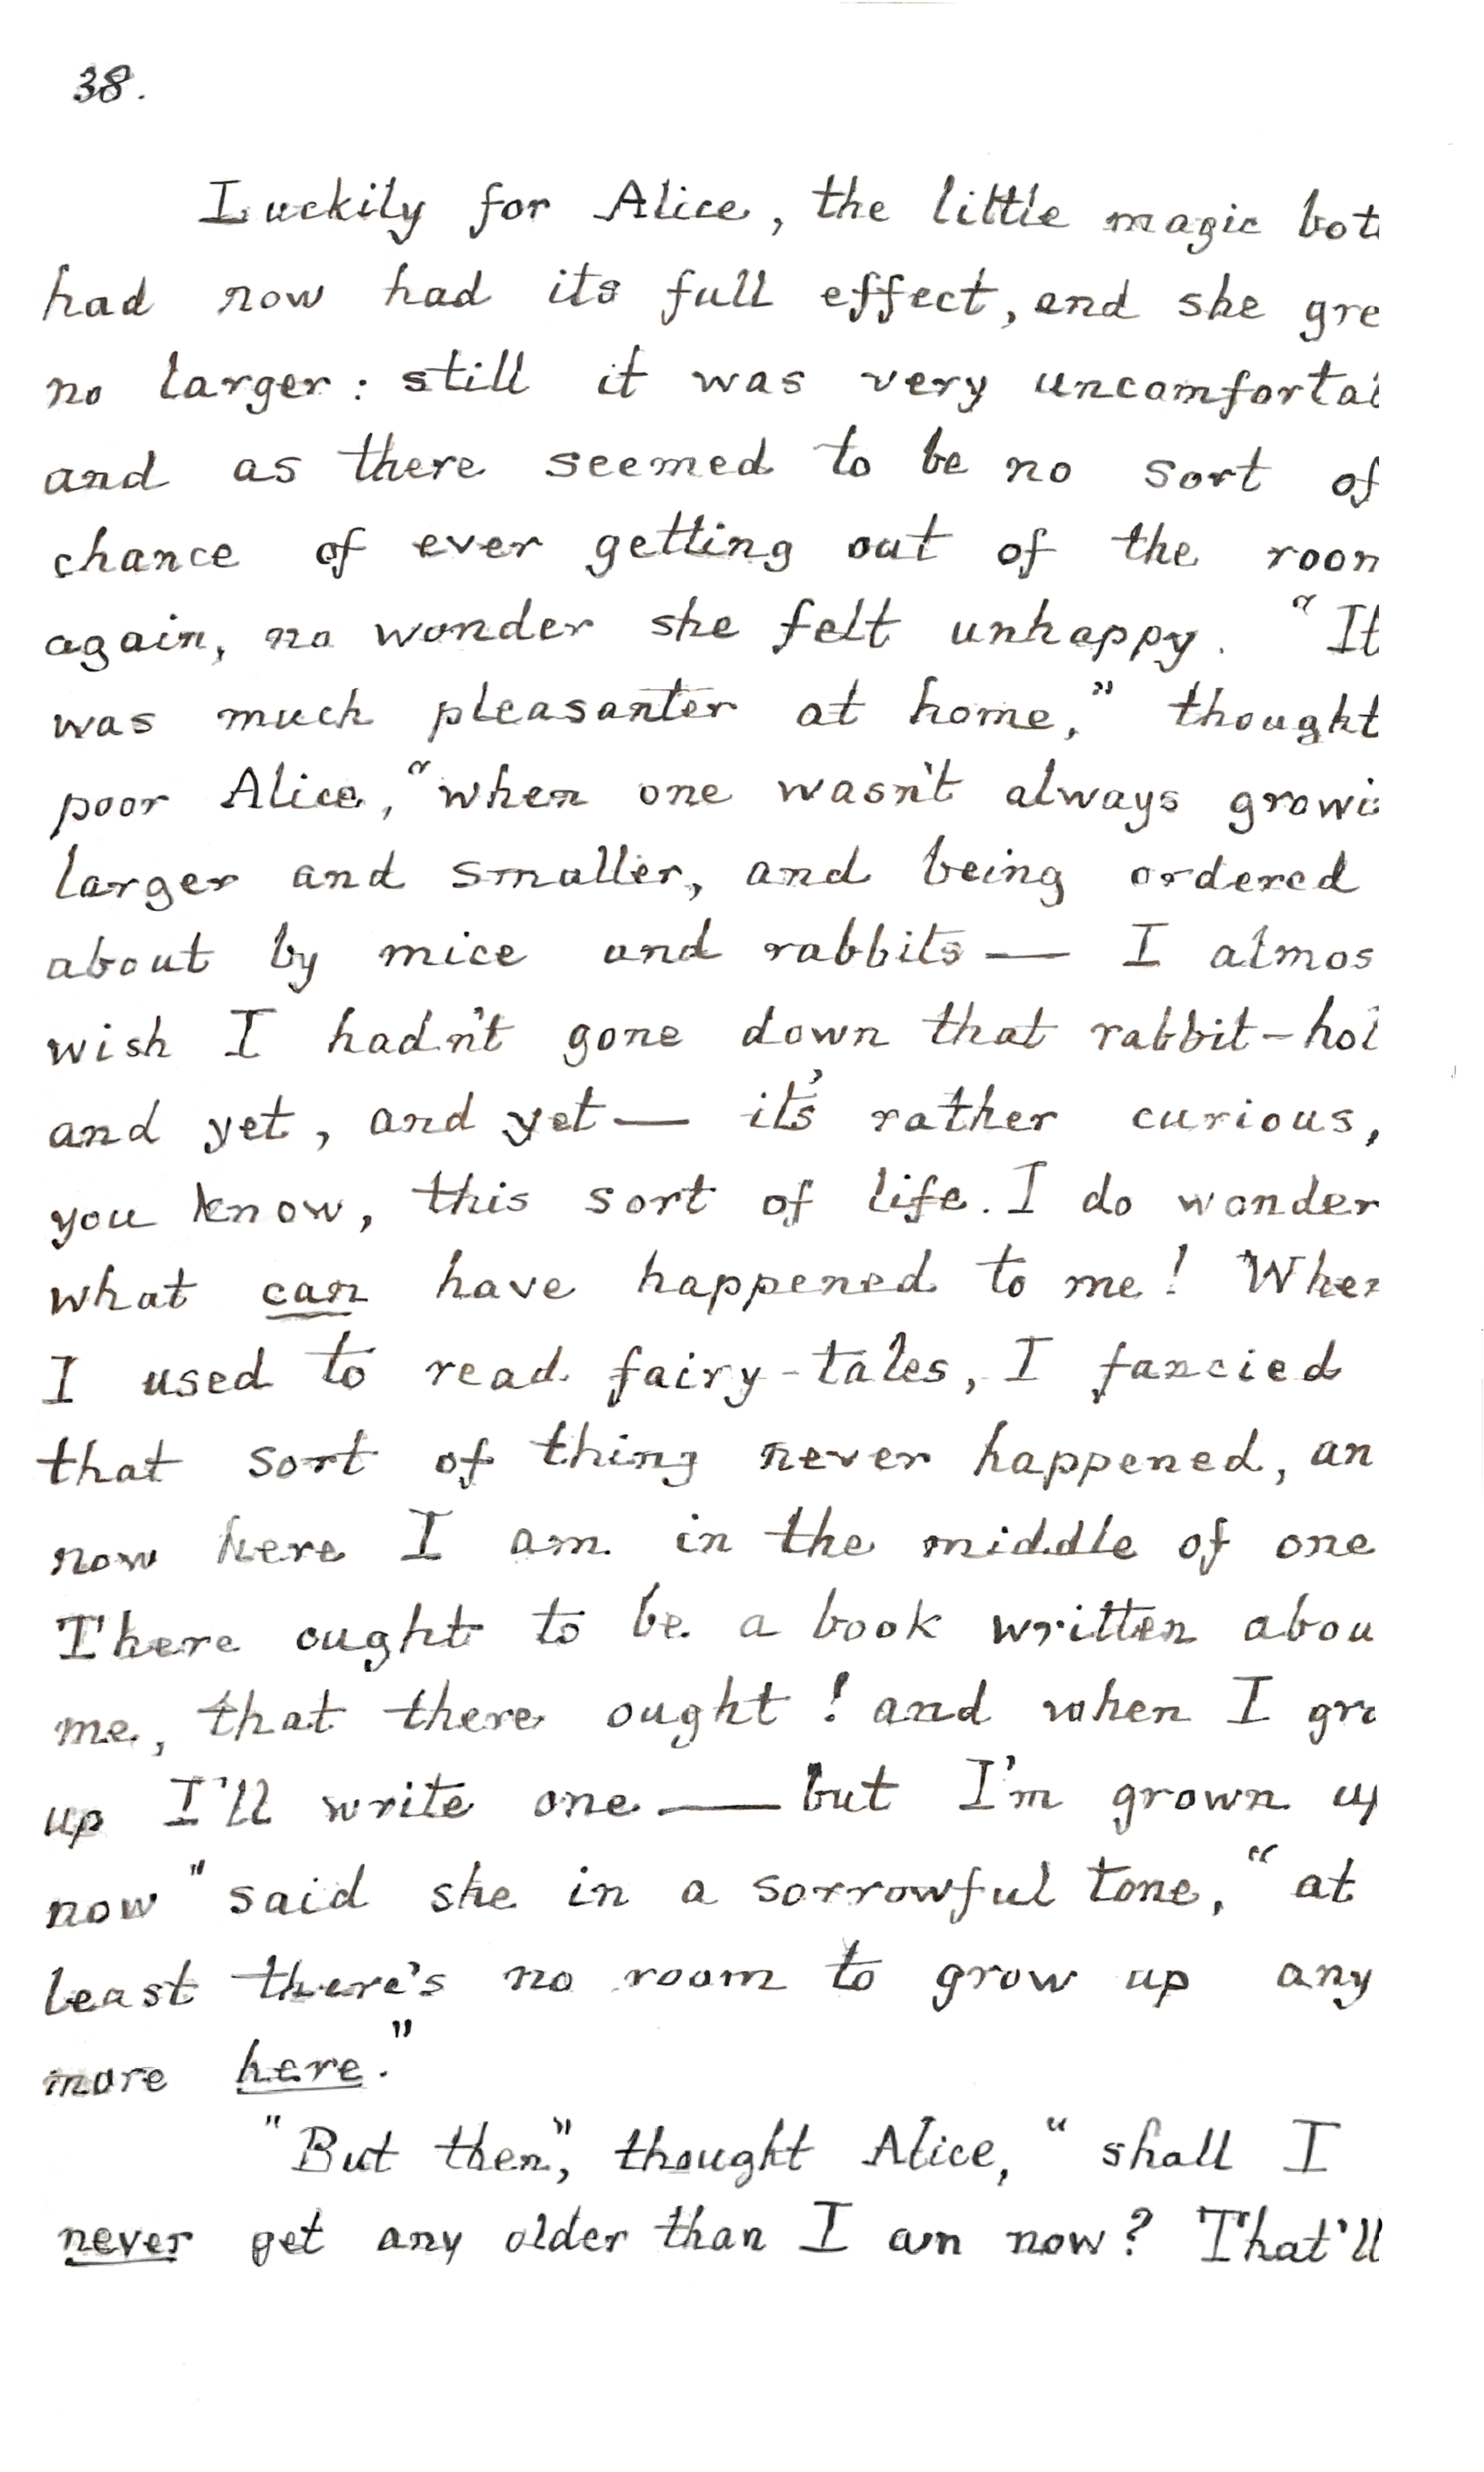 38.
Luckily for Alice, the little magic bot
had now had its full effect, and she gre
no larger: still it was very uncomfortab
and as there seemed to be no sort of
chance of ever getting out of the room
again, no wonder she felt unhappy. "It
was much pleasanter at home," thought
poor Alice, "when one wasn't always growi
larger and smaller, and being ordered
about by mice and rabbits — I almos
wish I hadn't gone down that rabbit-hol
and yet, and yet — it's rather curious,
you know, this sort of life. I do wonder
what can have happened to me! When
I used to read fairy-tales, I fancied
that sort of thing never happened, an
now here I am in the middle of one
There ought to be a book written abou
me, that there ought! and when I gro
up I'll write one — but I'm grown up
now" said she in a sorrowful tone, "at
least there's no room to grow up any
more here."
"But then," thought Alice, "shall I
never get any older than I am now? That'll